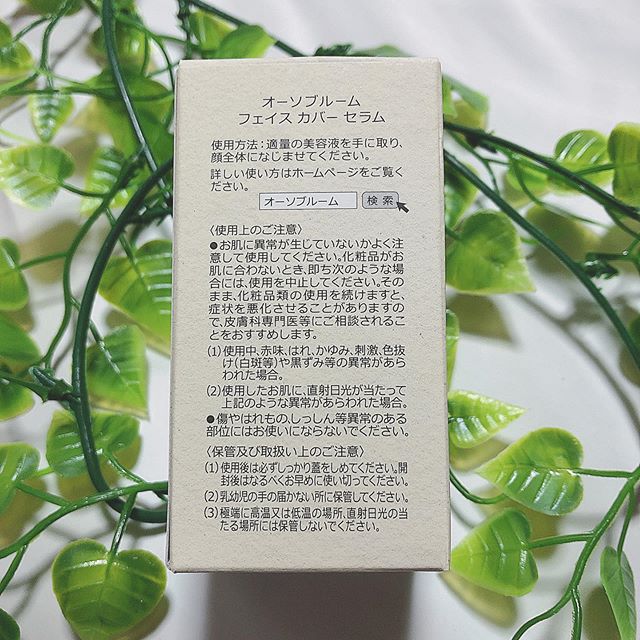 オーソブルーム
フェイス カバー セラム
使用方法：適量の美容液を手に取り、
顔全体になじませてください。
詳しい使い方はホームページをご覧く
ださい。
オーソブルーム 検索
〈使用上のご注意〉
●お肌に異常が生じていないかよく注
意して使用してください。化粧品がお
肌に合わないとき、即ち次のような場
合には、使用を中止してください。その
まま、化粧品類の使用を続けますと、
症状を悪化させることがありますの
で、皮膚科専門医等にご相談されるこ
とをおすすめします。
(1)使用中、赤味、はれ、かゆみ、刺激、色抜
け(白斑等)や黒ずみ等の異常があら
われた場合。
(2)使用したお肌に、直射日光が当たって
上記のような異常があらわれた場合。
●傷やはれもの、しっしん等異常のある
部位にはお使いにならないでください。
〈保管及び取扱い上のご注意〉
(1)使用後は必ずしっかり蓋をしめてください。開
封後はなるべくお早めに使い切ってください。
(2)乳幼児の手の届かない所に保管してください。
(3)極端に高温又は低温の場所、直射日光の当
たる場所には保管しないでください。